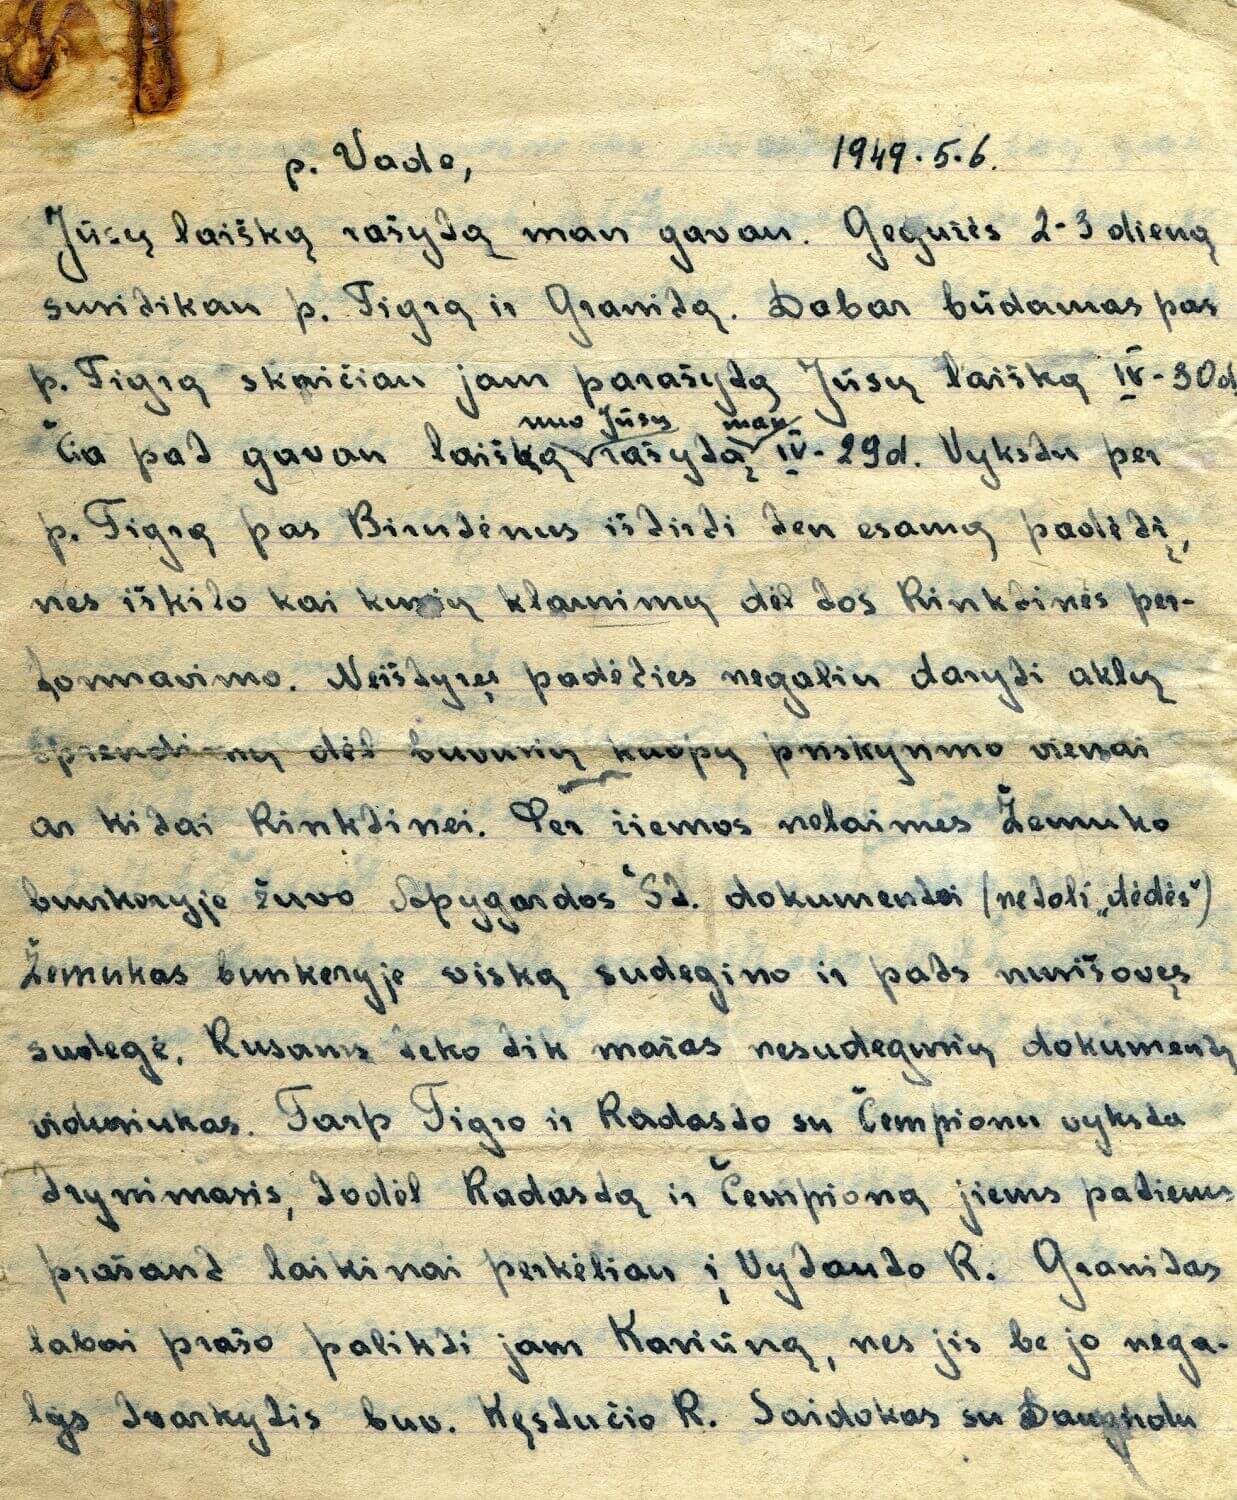 p. Vade, 1949.5.6.
Jūsų laišką rašytą man gavau. Gegužės 2-3 dieną
susitikau p. Tigrą ir Granitą. Dabar būdamas pas
p. Tigrą skaičiau jam parašytą Jūsų laišką IV-30d
nuo Jūsų man
Čia pat gavau laišką rašytą IV-29d. Vykstu per
p. Tigrą pas Birutėnus ištirti ten esamą padėtį,
nes iškilo kai kurių klausimų dėl tos Rinktinės per-
formavimo. Neištyręs padėties negaliu daryti aklų
sprendimų dėl buvusių kuopų priskyrimo vienai
ar kitai Rinktinei. Per žiemos nelaimes Žemuko
bunkeryje žuvo Apygardos Št. dokumentai (netoli „dėdės")
Žemukas bunkeryje viską sudegino ir pats nusišovęs
sudegė. Rusams teko tik mažas nesudegusių dokumentų
viduriukas. Tarp Tigro ir Radasto su Čempionu vyksta
trynimasis, todėl Radastą ir Čempioną jiems patiems
prašant laikinai perkėliau į Vytauto R. Granitas
labai prašo palikti jam Kariūną, nes jis be jo nega-
lįs tvarkytis buv. Kęstučio R. Saidokas su Daugirdu